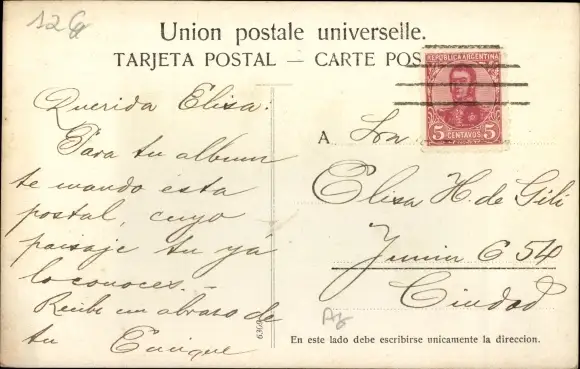 12
Union postale universelle.
TARJETA POSTAL — CARTE POS
REPUBLICA ARGENTINA
5 CENTAVOS 5
Querida Elisa:
Para tu album
te mando esta
postal, cuyo
paisaje tu yá
lo conoces. -
Recibe un abrazo de
tu Enrique
A Sra.
Elisa H. de Gili
Junin 654
Ciudad
En este lado debe escribirse unicamente la direccion.